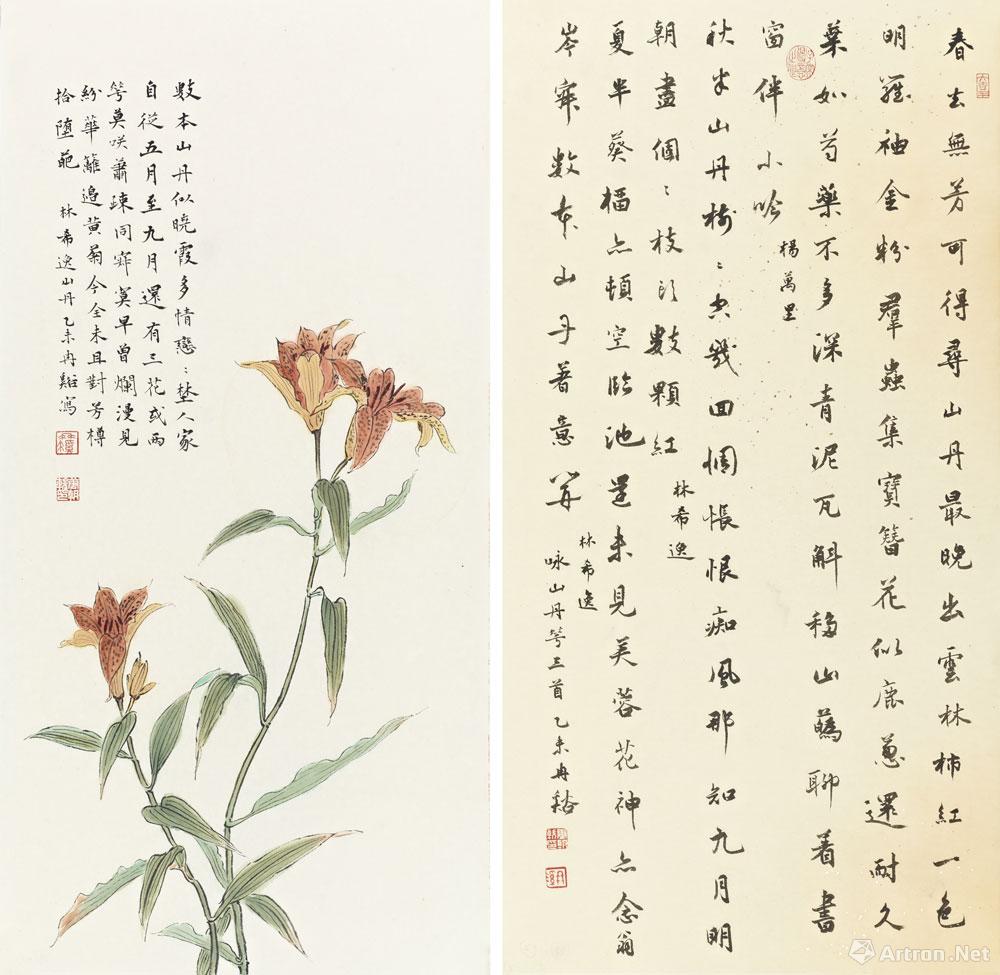 數本山丹似曉霞多情戀〻埜人家
自從五月至九月還有三花或兩
萼莫咲蕭疎同寂寞早曾爛漫見
紛華籬邉黄菊今全未且對芳樽
拾墮葩 林希逸山丹 乙未冉谿寫
春去無芳可得尋山丹最晚出雲林柿紅一色
明羅袖金粉羣蟲集寶簪花似鹿葱還耐久
葉如芍藥不多深青泥瓦斛移山蘤聊着書
窗伴小吟 楊萬里
秋半山丹樹〻空幾回惆悵恨痴風那知九月明
朝盡個〻枝頭數顆紅 林希逸
夏半葵榴亦頓空臨池還未見芙蓉花神亦念翁
岑寂數本山丹著意開 林希逸
咏山丹萼三首 乙未冉谿
Artron.Net